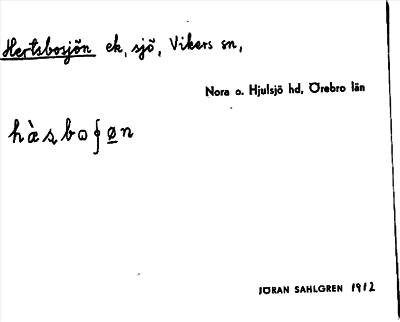 Hertsbosjön ek, sjö, Vikers sn,
Nora o. Hjulsjö hd, Örebro län
hàsboʃøn
JÖRAN SAHLGREN 1912